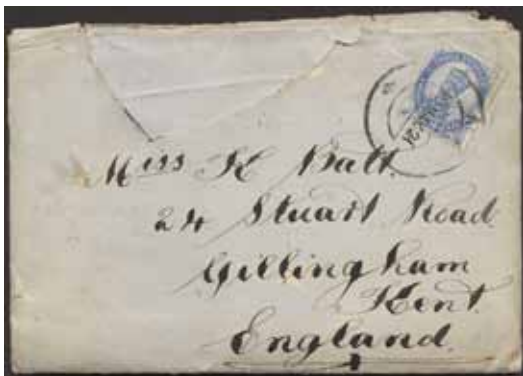 Miss K Batt.
24 Stuart Road
Gillingham
Kent.
England.